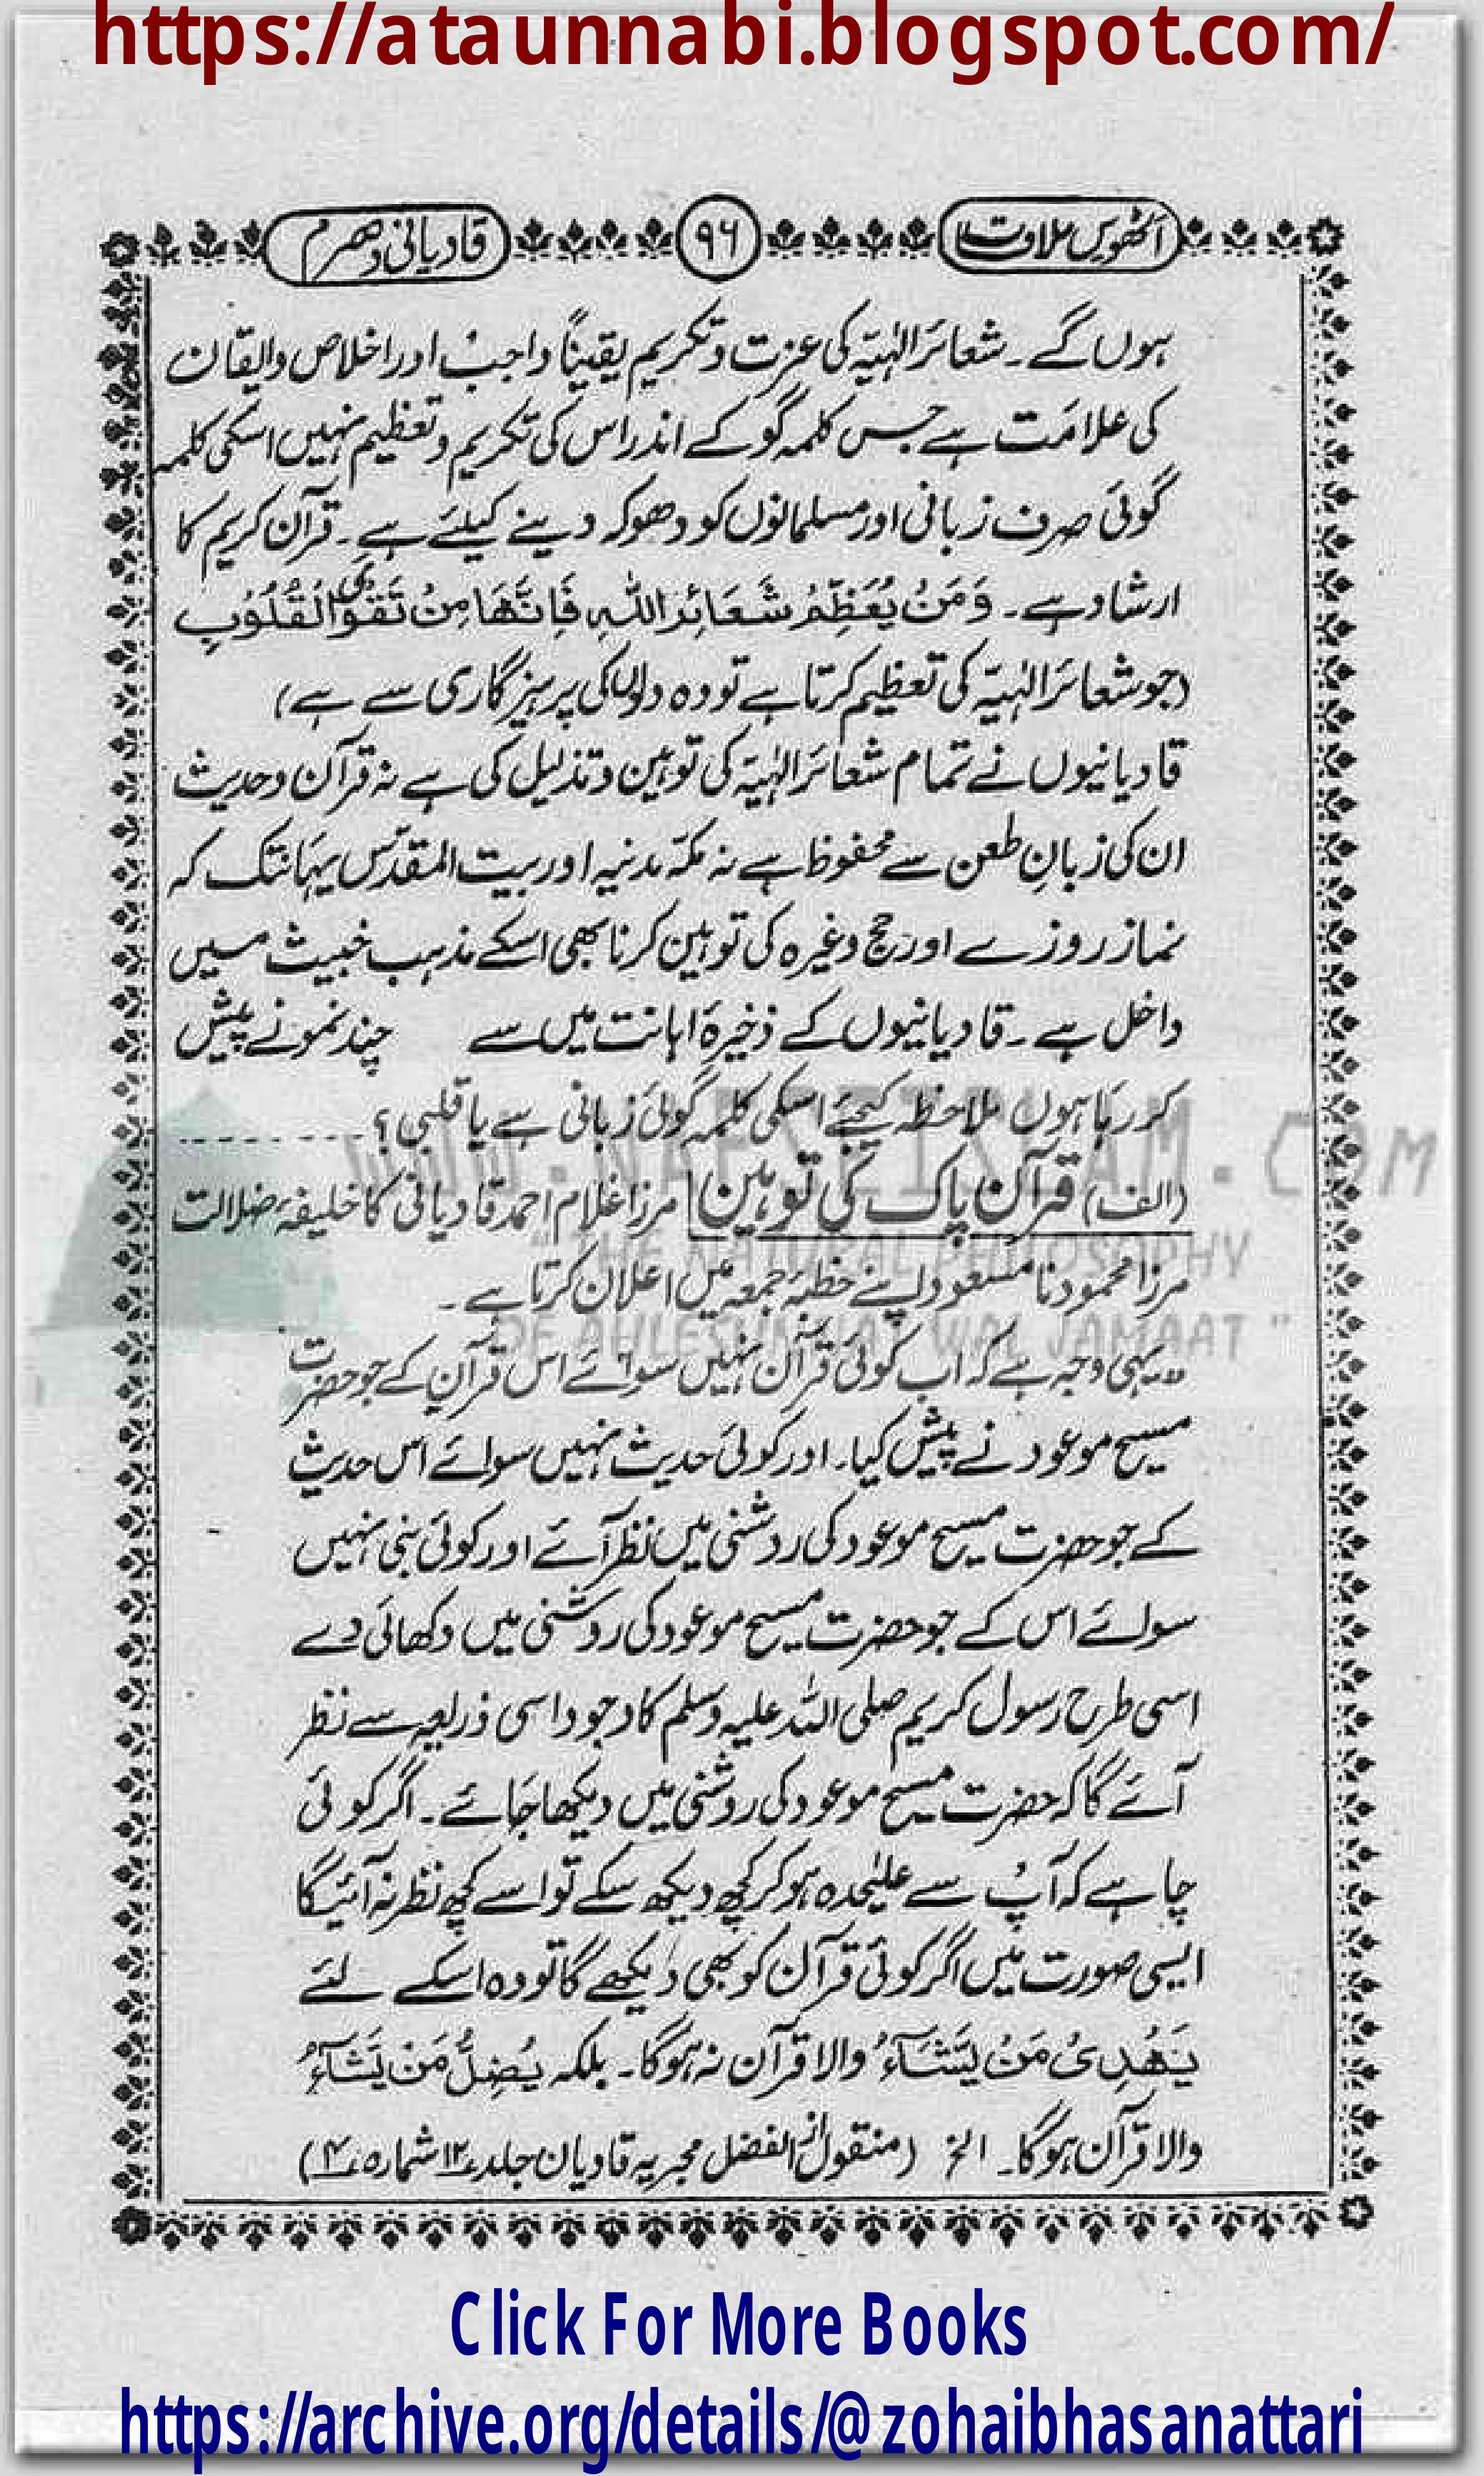 https://ataunnabi.blogspot.com/
آٹھویں علامت
۹۶
قادیانی دھرم
ہوں گے ۔ شعائر الٰہیّہ کی عزت و تکریم یقیناً واجب اور اخلاص وایقان
کی علامت ہے جس کلمہ گو کے اندر اس کی تکریم و تعظیم نہیں اسکی کلمہ
گوئی صرف زبانی اور مسلمانوں کو دھوکہ دینے کیلئے ہے ۔ قرآن کریم کا
ارشاد ہے ۔ وَمَنْ يُعَظِّمْ شَعَائِرَ اللهِ فَإِنَّهَا مِنْ تَقْوَى الْقُلُوْبِ
(جو شعائر الٰہیّہ کی تعظیم کرتا ہے تو وہ دلوں کی پرہیزگاری سے ہے)
قادیانیوں نے تمام شعائر الٰہیّہ کی توہین و تذلیل کی ہے نہ قرآن و حدیث
ان کی زبانِ طعن سے محفوظ ہے نہ مکّہ مدنیہ اور بیت المقدّس یہانتک کہ
نماز روزے اور حج وغیرہ کی توہین کرنا بھی اسکے مذہب خبیث میں
داخل ہے ۔ قادیانیوں کے ذخیرۂ اہانت میں سے چند نمونے پیش
کر رہا ہوں ملاحظہ کیجئے اسکی کلمہ گوئی زبانی ہے یا قلبی ؟ ---------
(الف) قرآن پاک کی توہین مرزا غلام احمد قادیانی کا خلیفۂ ضلالت
مرزا محمود نا مسعود اپنے خطبۂ جمعہ میں اعلان کرتا ہے ۔
WWW.NAFSEISLAM.COM
"THE NATURAL PHILOSOPHY
OF AHLESUNNAT WAL JAMAAT"
”یہی وجہ ہے کہ اب کوئی قرآن نہیں سوائے اس قرآن کے جو حضرت
مسیح موعود نے پیش کیا۔ اور کوئی حدیث نہیں سوائے اس حدیث
کے جو حضرت مسیح موعود کی روشنی میں نظر آئے اور کوئی نبی نہیں
سوائے اس کے جو حضرت مسیح موعود کی روشنی میں دکھائی دے
اسی طرح رسول کریم صلی اللہ علیہ وسلم کا وجود اسی ذریعہ سے نظر
آئے گا کہ حضرت مسیح موعود کی روشنی میں دیکھا جائے ۔ اگر کوئی
چاہے کہ آپ سے علیٰحدہ ہو کر کچھ دیکھ سکے تو اسے کچھ نظر نہ آئیگا
ایسی صورت میں اگر کوئی قرآن کو بھی دیکھے گا تو وہ اسکے لئے
یَهْدِیْ مَنْ یَّشَآءُ والا قرآن نہ ہوگا ۔ بلکہ یُضِلُّ مَنْ یَشَآءُ
والا قرآن ہوگا۔ الخ (منقول از الفضل مجریہ قادیان جلد ۱۲ شمارہ ۴)
Click For More Books
https://archive.org/details/@zohaibhasanattari